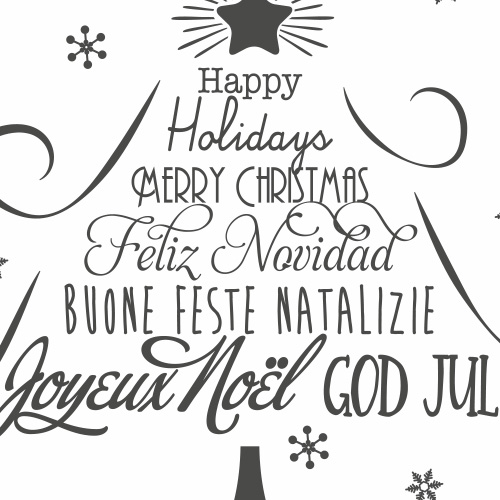 Happy
Holidays
MERRY CHRISTMAS
Feliz Novidad
BUONE FESTE NATALIZIE
Joyeux Noël GOD JUL